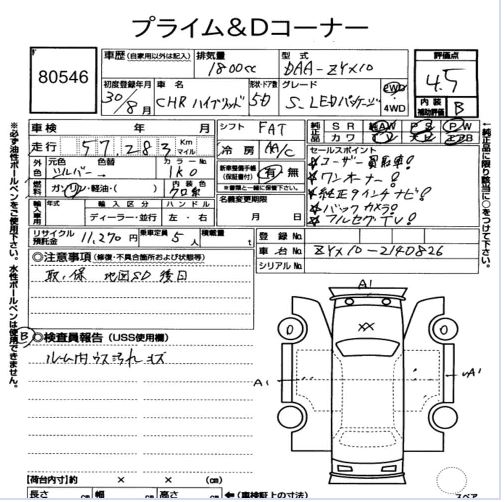 プライム&Dコーナー
80546
車歴 (自家用以外は記入) 排気量 1800cc 型式 DAA-ZYX10
評価点 4.5
内装補助評価 B
初度登録年月 30年/8月 車名 CHRハイブリッド 形状・ドア数 5D グレード S.LEDパッケージ 2WD 4WD
車検 年 月 シフト FAT 純正品 SR AW PS PW
走行 57,283 Km マイル 冷房 AA/C カワ ナビ TV エアB
外色 元色 シルバー 色替 カラーNo 1K0
新車整備手帳(保証書付) 有・無
※書類と一緒に保管してください。
燃料 ガソリン・軽油・( ) 内装色 クロ系
名義変更期限 月 日
セールスポイント
☆ユーザー買取車!
☆ワンオーナー!
☆純正9インチナビ!
☆バックカメラ!
☆フルセグTV!
輸入車 年式 輸入区分 ディーラー・並行 ハンドル 左・右
リサイクル預託金 11,270円 乗車定員 5人 積載量 t
登録No.
車台No. ZYX10-2140826
シリアルNo.
◎注意事項 (修復・不具合箇所および状態等)
取,保 地図SD後日
B
◎検査員報告 (USS使用欄)
ルーム内ウス汚れ キズ
A1
XX
A1
A1
【荷台内寸】 × × (cm)
長さ cm 幅 cm 高さ cm
(車検証上の寸法)
スペア
※必ず油性ボールペンをご使用下さい。水性ボールペンは使用できません。
←純正品欄に限り該当に○をつけて下さい。